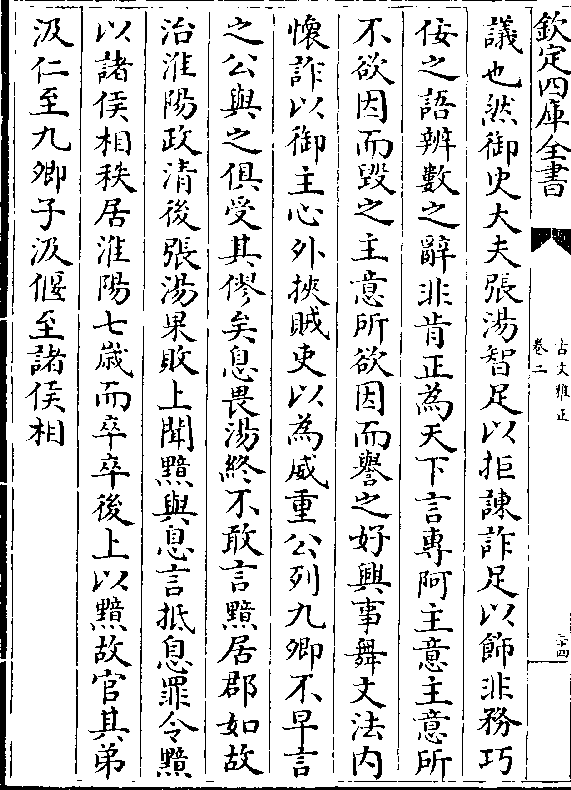 欽定四庫全書
古文雅正
卷二
議也然御史大夫張湯智足以拒諫詐足以飾非務巧
佞之語辨數之辭非肯正為天下言專阿主意主意所
不欲因而毀之主意所欲因而譽之好興事舞文法内
懷詐以御主心外挾賊吏以為威重公列九卿不早言
之公與之俱受其僇矣息畏湯終不敢言黯居郡如故
治淮陽政清後張湯果敗上聞黯與息言抵息罪令黯
以諸侯相秩居淮陽七歲而卒卒後上以黯故官其弟
汲仁至九卿子汲偃至諸侯相